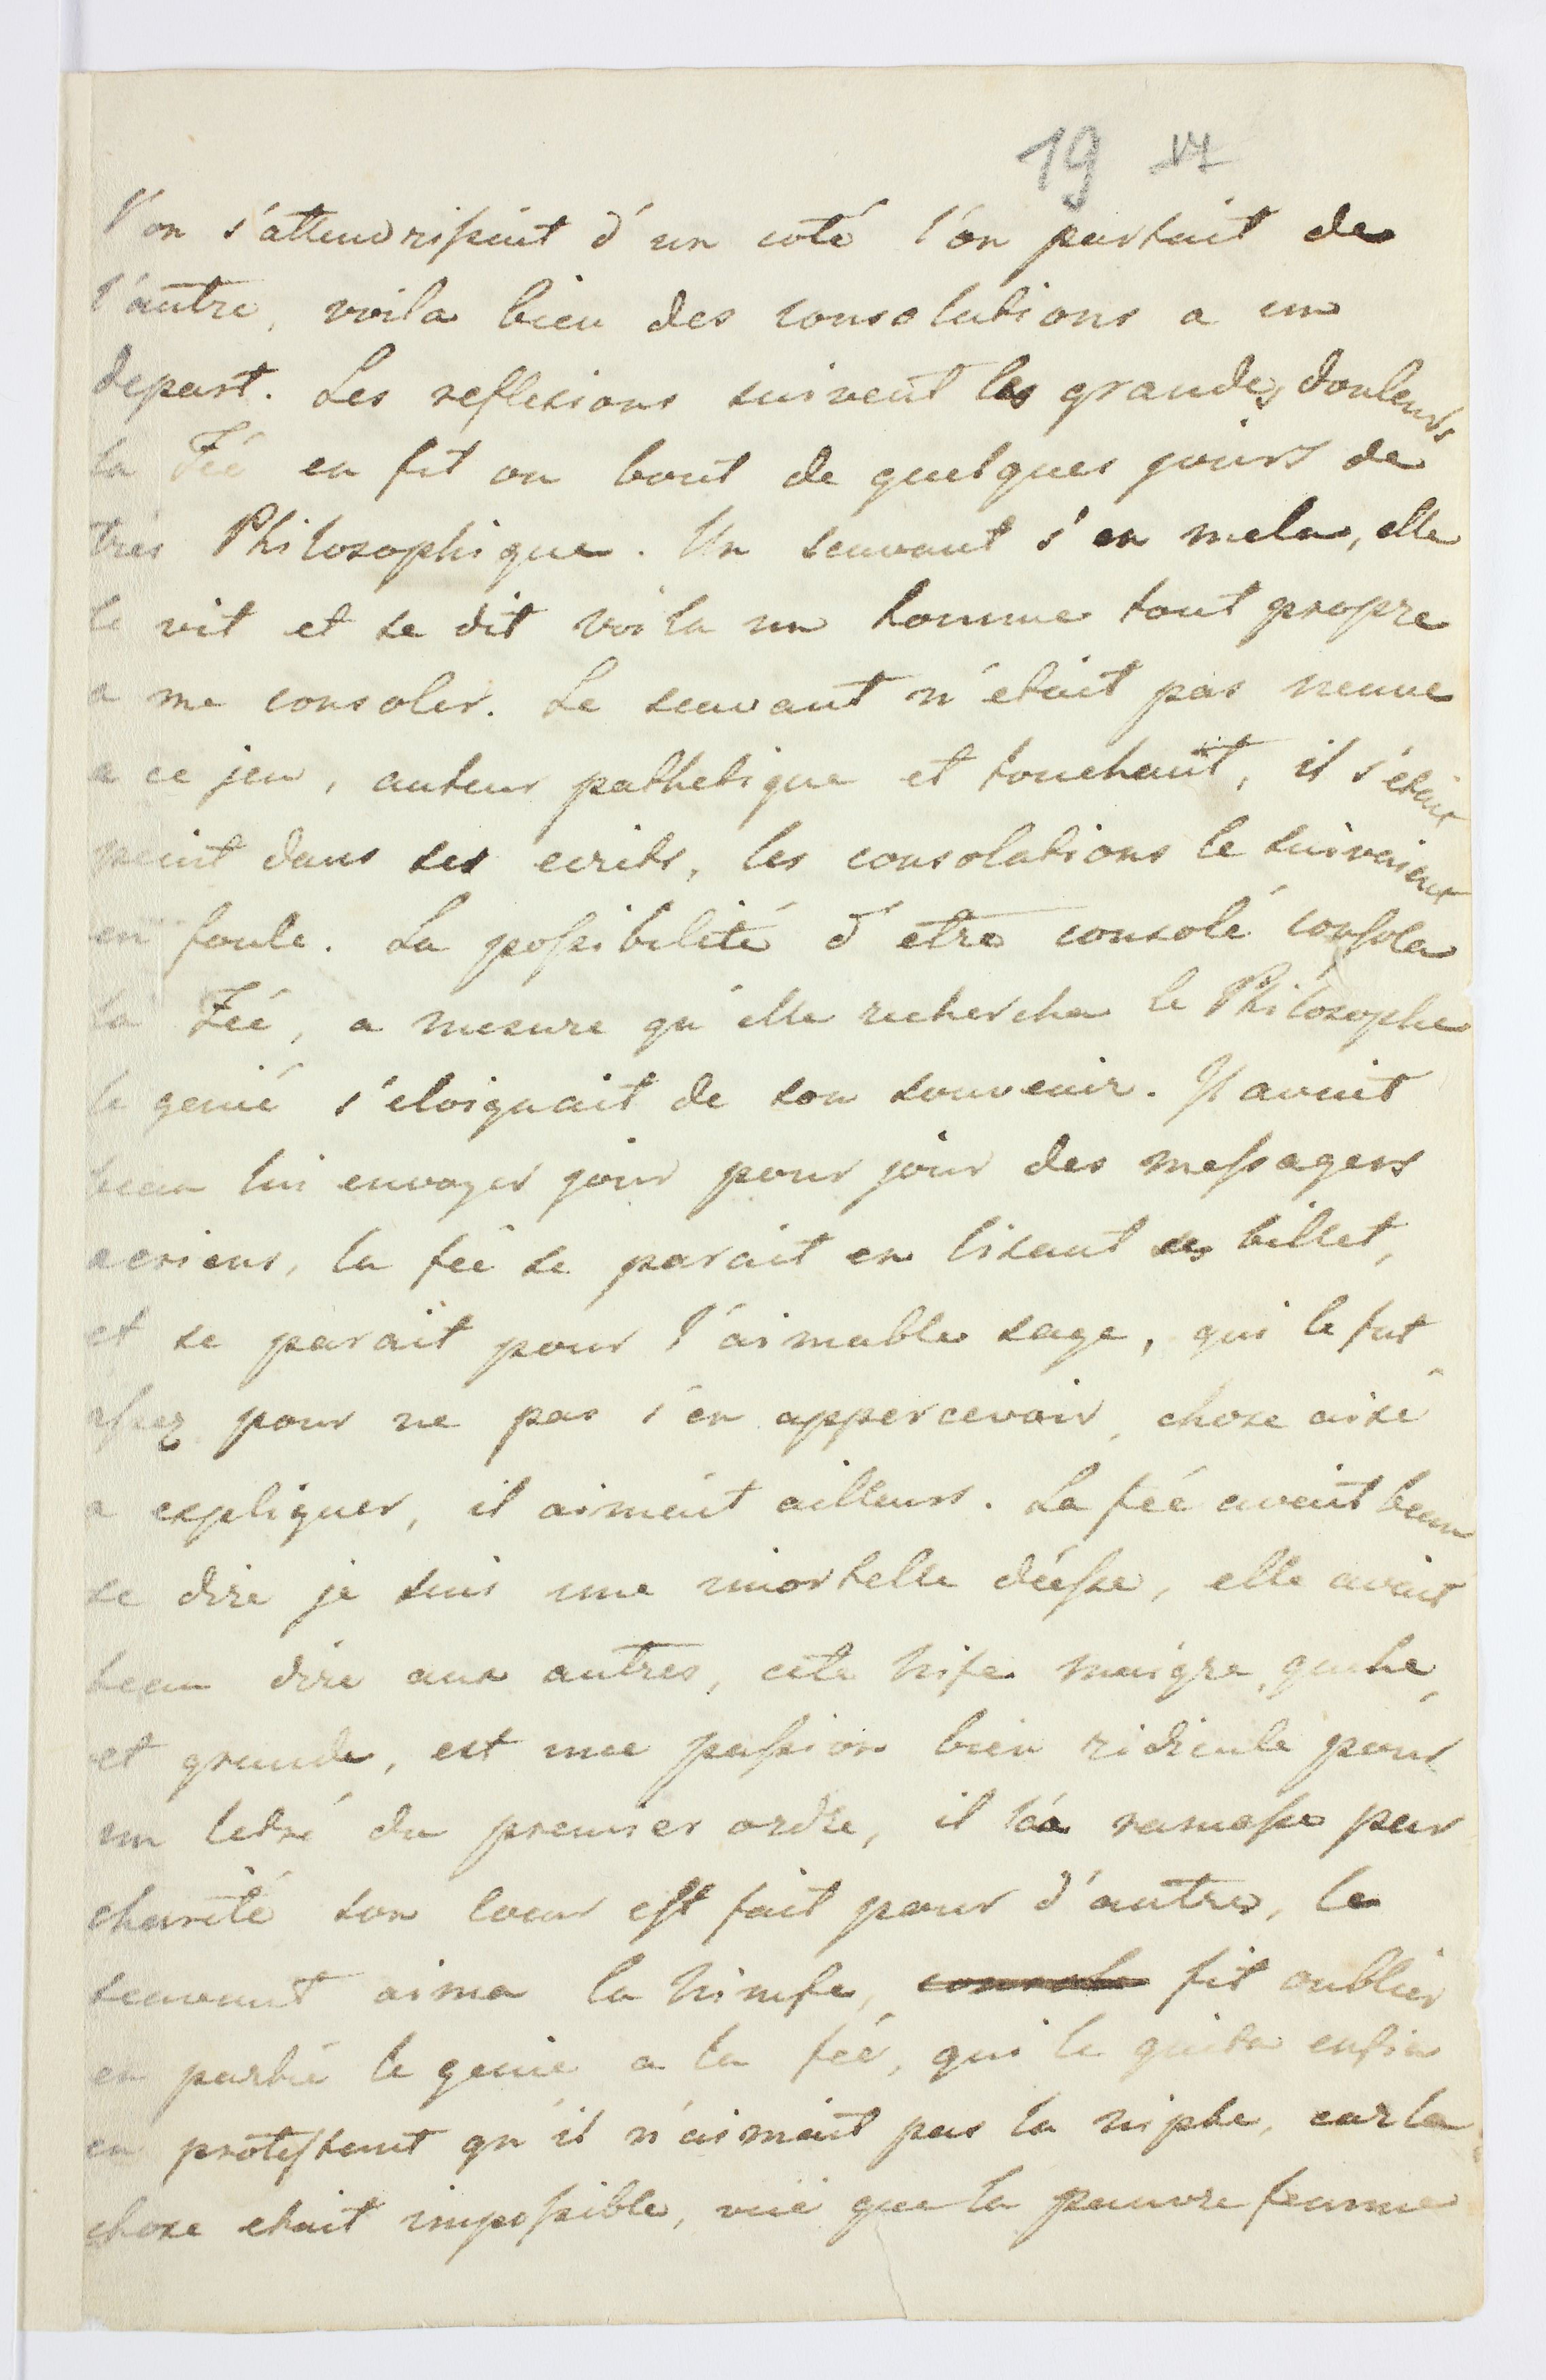 19 17
l'on s'attendrissait d'un coté l'on partait de
l'autre, voila bien des consolations a un
depart. Les reflexions suivent les grandes douleurs
la Feé en fit au bout de quelques jours de
tres Philosophique. Un scavant s'en mela, elle
le vit et se dit voila un homme tout propre
a me consoler. Le scavant n'etait pas neuve
a ce jeu, auteur pathetique et touchant, il s'etait
peint dans ses ecrits, les consolations le suivaient
en foule. La possibilité d'etre consolé consola
la Feé, a mesure qu'elle rechercha le Philosophe
le genié s'eloignait de son souvenir. Il avait
beau lui envoyer jour pour jour des messagers
aeriens, la feé se parait en lisant ses billet,
et se parait pour l'aimable sage, qui le fut
assez pour ne pas s'en appercevoir, chose aisé
a expliquer, il aimait ailleurs. La feé avait beau
se dire je suis une imortelle déesse, elle avait
beau dire aux autres, cete nife maigre, gauche,
et grande, est une passion bien ridicule pour
un letré du premier ordre, il l'a ramasse par
charité son coeur est fait pour d'autres, le
scavant aima la nimfe, fit oublier
en partie le genie a la feé, qui le quita enfin
en protestant qu'il n'aimait pas la niphe, car la
chose etait impossible, vué que la pauvre femme